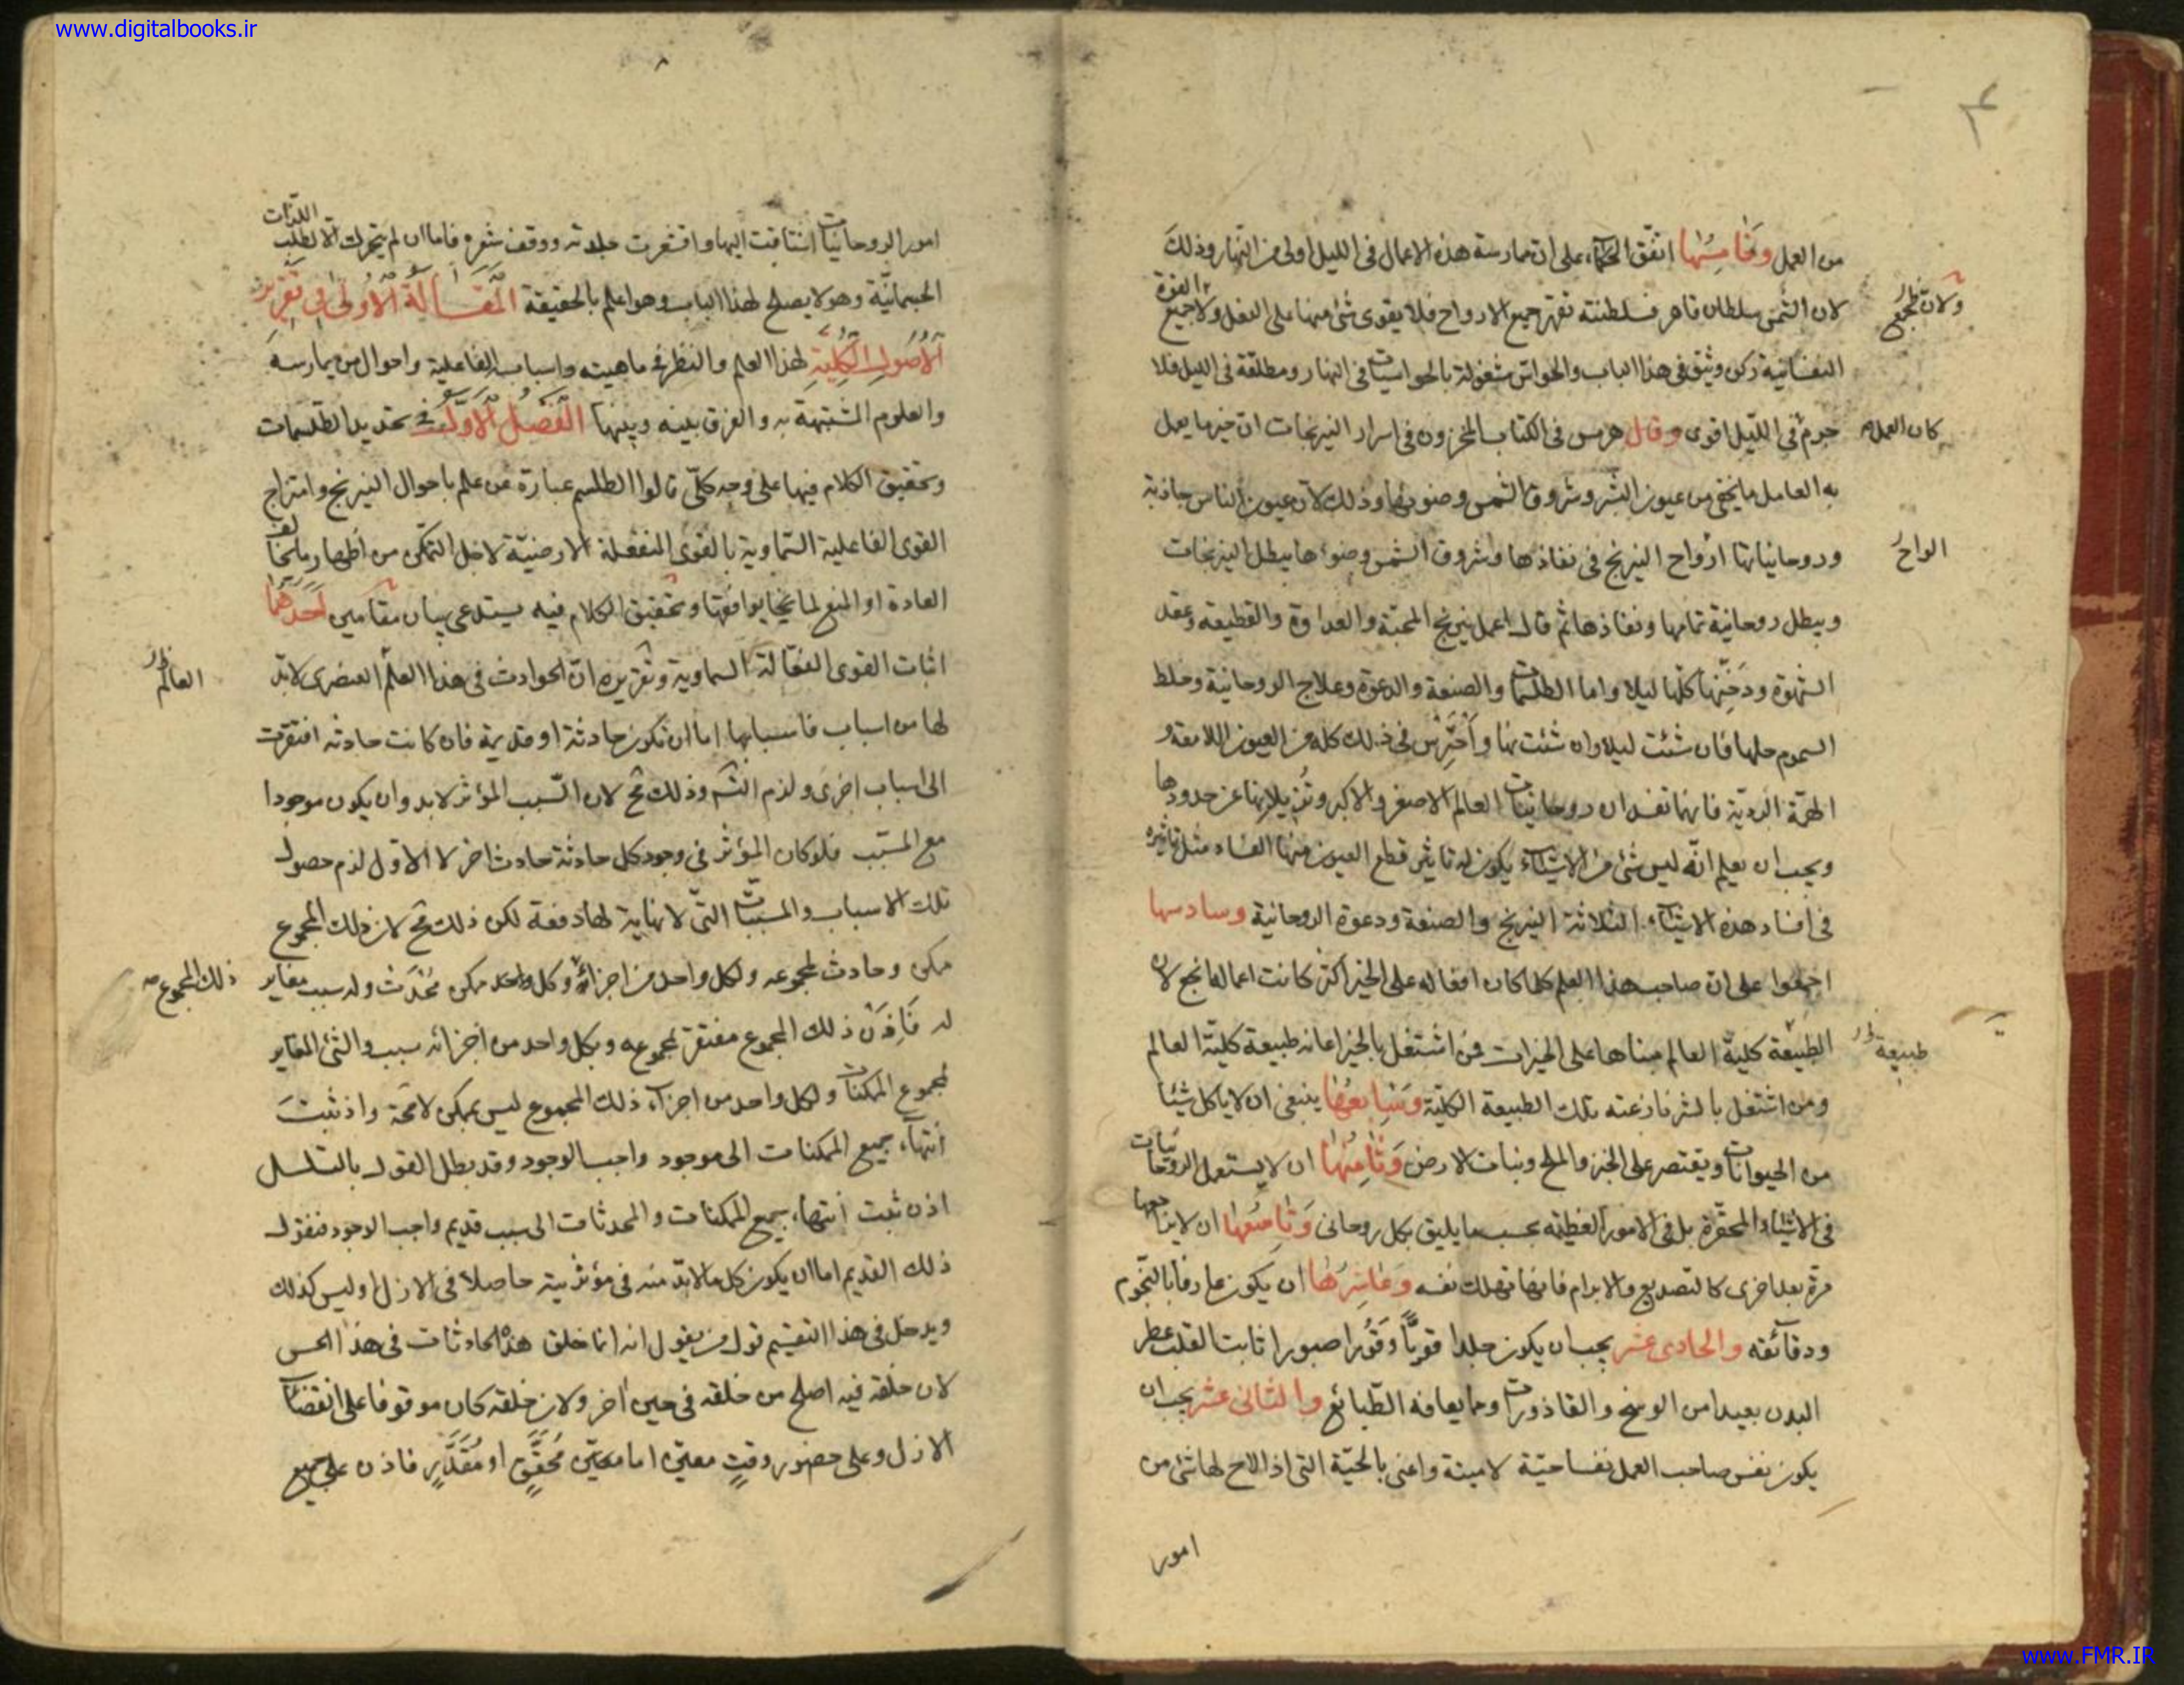 www.digitalbooks.ir
من العمل وخامسها اتفق الحكماء على ان ممارسة هذه الاعمال فى الليل اولى من النهار وذلك
لان الشمس سلطان قاهر فسلطنته تقهر جميع الارواح فلا يقوى شئ منها على الفعل ولا جميع القوة
ولان تجمع
النفسانية ركن وثيق فى هذا الباب والحواس مشغولة بالحواسيات فى النهار ومطلقة فى الليل فلا
جرم فى الليل اقوى وقال هرمس فى الكتاب المخزون فى اسرار النيرنجات ان خير ما يعمل
كان العمل
به العامل ما يخفى من عيون البشر وشروق الشمس وضوئها وذلك لان عيون الناس جاذبة
وروحانياتها ارواح النيرنج فى نفاذها وشروق الشمس وضوءها يبطل النيرنجات
الواح
ويبطل روحانية تمامها ونفاذها ثم قال اعمل نيرنج المحبة والعداوة والقطيعة وعقد
الشهوة ودخنها كلها ليلا واما الطلسمات والصنعة والدعوة وعلاج الروحانية وخلط
السموم حلها فان شئت ليلا وان شئت نهارا واحترس فى ذلك كله من العيون اللامعة و
الردية فانها تفسد ان روحانيات العالم الاصغر والاكبر وتزيلانها عن حدودها
ويجب ان يعلم انه ليس شئ من الاشياء يكون له تاثير قطع العيون منها الفساد مثل تاثيره
فى افساد هذه الاشياء الثلاثة النيرنج والصنعة ودعوة الروحانية وسادسها
اجمعوا على ان صاحب هذا العلم كلما كان افعاله على الخير اكثر كانت اعماله انجح لان
الطبيعة كلية العالم مبناها على الخيرات فمن اشتغل بالخير اعانه طبيعة كلية العالم
طبيعة
ومن اشتغل بالشر نازعته تلك الطبيعة الكلية وسابعها ينبغى ان لا ياكل شيئا
من الحيوانات ويقتصر على الخبز والملح ونبات الارض وثامنها ان لا يستعمل الروحانيات
فى الاشياء المحقرة بل فى الامور العظيمة بحسب ما يليق بكل روحانى وتاسعها ان لا
مرة بعد اخرى كالتصديع والابرام فانها تهلك نفسه وعاشرها ان يكون عارفا بالنجوم
ودقائقه والحادى عشر يجب ان يكون جلدا قويا وقورا صبورا ثابت القلب عطر
البدن بعيدا من الوسخ والقاذورات وما يعافه الطبائع والثانى عشر يجب ان
يكون نفس صاحب العمل نفسا حية لا ميتة واعنى بالحية التى اذا لاح لها شئ من
امور
امور الروحانيات اشتاقت اليها واقشعرت جلدته ووقف شعره فاما ان لم يتحرك الا لطلب اللذات
الجسمانية وهو لا يصلح لهذا الباب وهو اعلم بالحقيقة المقالة الاولى فى تقرير
الاصول الكلية لهذا العلم والنظر فى ماهيته واسبابه الفاعلية واحوال من يمارسه
والعلوم المشتبهة به والفرق بينه وبينها الفصل الاول فى تحديد الطلسمات
وتحقيق الكلام فيها على وجه كلى قالوا الطلسم عبارة عن علم باحوال النيرنج وامتزاج
القوى الفاعلية السماوية بالقوى المنفعلة الارضية لاجل التمكن من اظهار ما يخالف
العادة او المنع لما يوافقها وتحقيق الكلام فيه يستدعى بيان مقامين احدهما
اثبات القوى الفعالة السماوية وتقريره ان الحوادث فى هذا العلم العنصرى لابد
العالم
لها من اسباب فاسبابها اما ان تكون حادثة او قديمة فان كانت حادثه افتقرت
الى اسباب اخرى ولزم التسلسل وذلك مح لان السبب المؤثر لابد وان يكون موجودا
مع المسبب فلو كان المؤثر فى وجود كل حادثة حادث اخر لا الاول لزم حصول
تلك الاسباب والمسببات التى لا نهاية لها دفعة لكن ذلك مح لان ذلك المجموع
ممكن وحادث لمجموعه ولكل واحد من اجزائه وكل واحد ممكن محدث وله سبب مغاير
ذلك المجموع
له فاذن ذلك المجموع مفتقر لمجموعه وبكل واحد من اجزائه سبب والشئ المغاير
لمجموع الممكنات ولكل واحد من اجزاء ذلك المجموع ليس بممكن لامحة واذ ثبت
انتهاء جميع الممكنات الى موجود واجب الوجود وقد بطل القول بالتسلسل
اذن ثبت انتهاء جميع الممكنات والمحدثات الى سبب قديم واجب الوجود فنقول
ذلك القديم اما ان يكون كل ما لابد منه فى مؤثريته حاصلا فى الازل او ليس كذلك
ويدخل فى هذا التقسيم قول من يقول انه انما خلق هذه الحادثات فى هذا الحين
لان خلقه فيه اصلح من خلقه فى حين اخر ولان خلقه كان موقوفا على انقضاء
الازل وعلى حضور وقت معين اما معين محقق او مقدر فاذن على جميع
www.FMR.IR